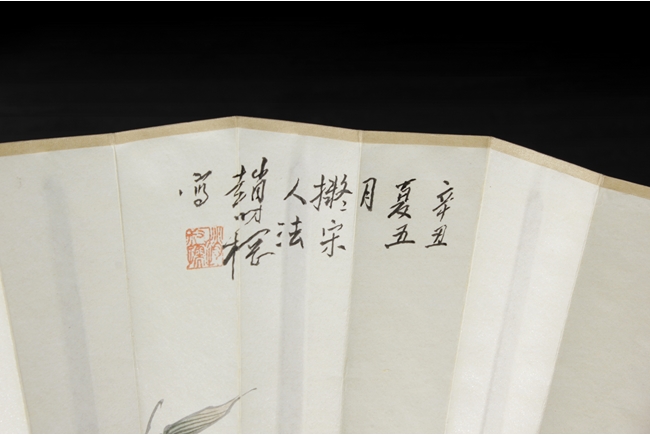 辛丑
夏五
月
擬宋
人法
趙時棡
寫